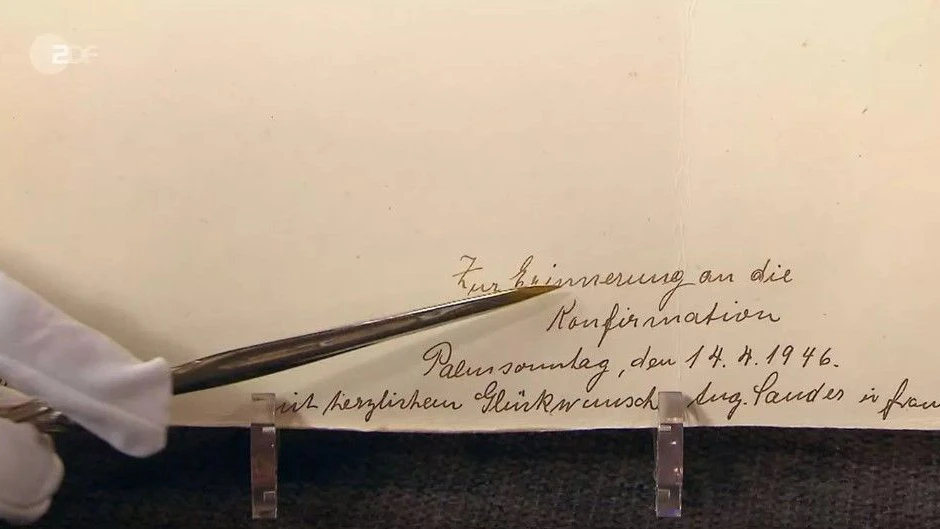 ZDF
Zur Erinnerung an die
Konfirmation
Palmsonntag, den 14.4.1946.
mit herzlichem Glückwunsch Aug. Sander